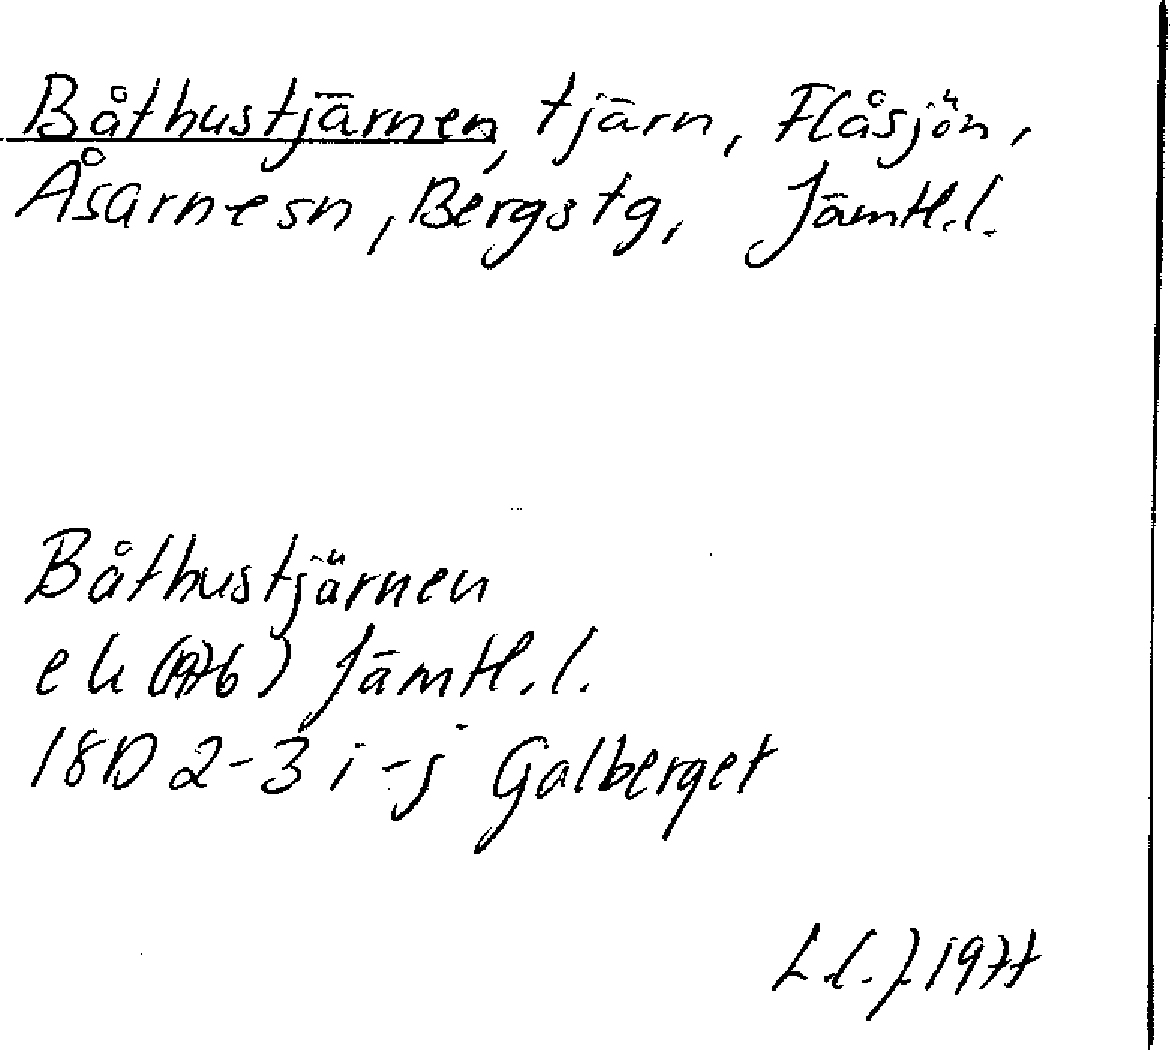 Båthustjärnen, tjärn, Flåsjön,
Åsarnesn, Bergstg, Jämtl.l.
Båthustjärnen
ek (1976) Jämtl.l.
18D 2-3 i-j Galberget
L.l.J. 1977